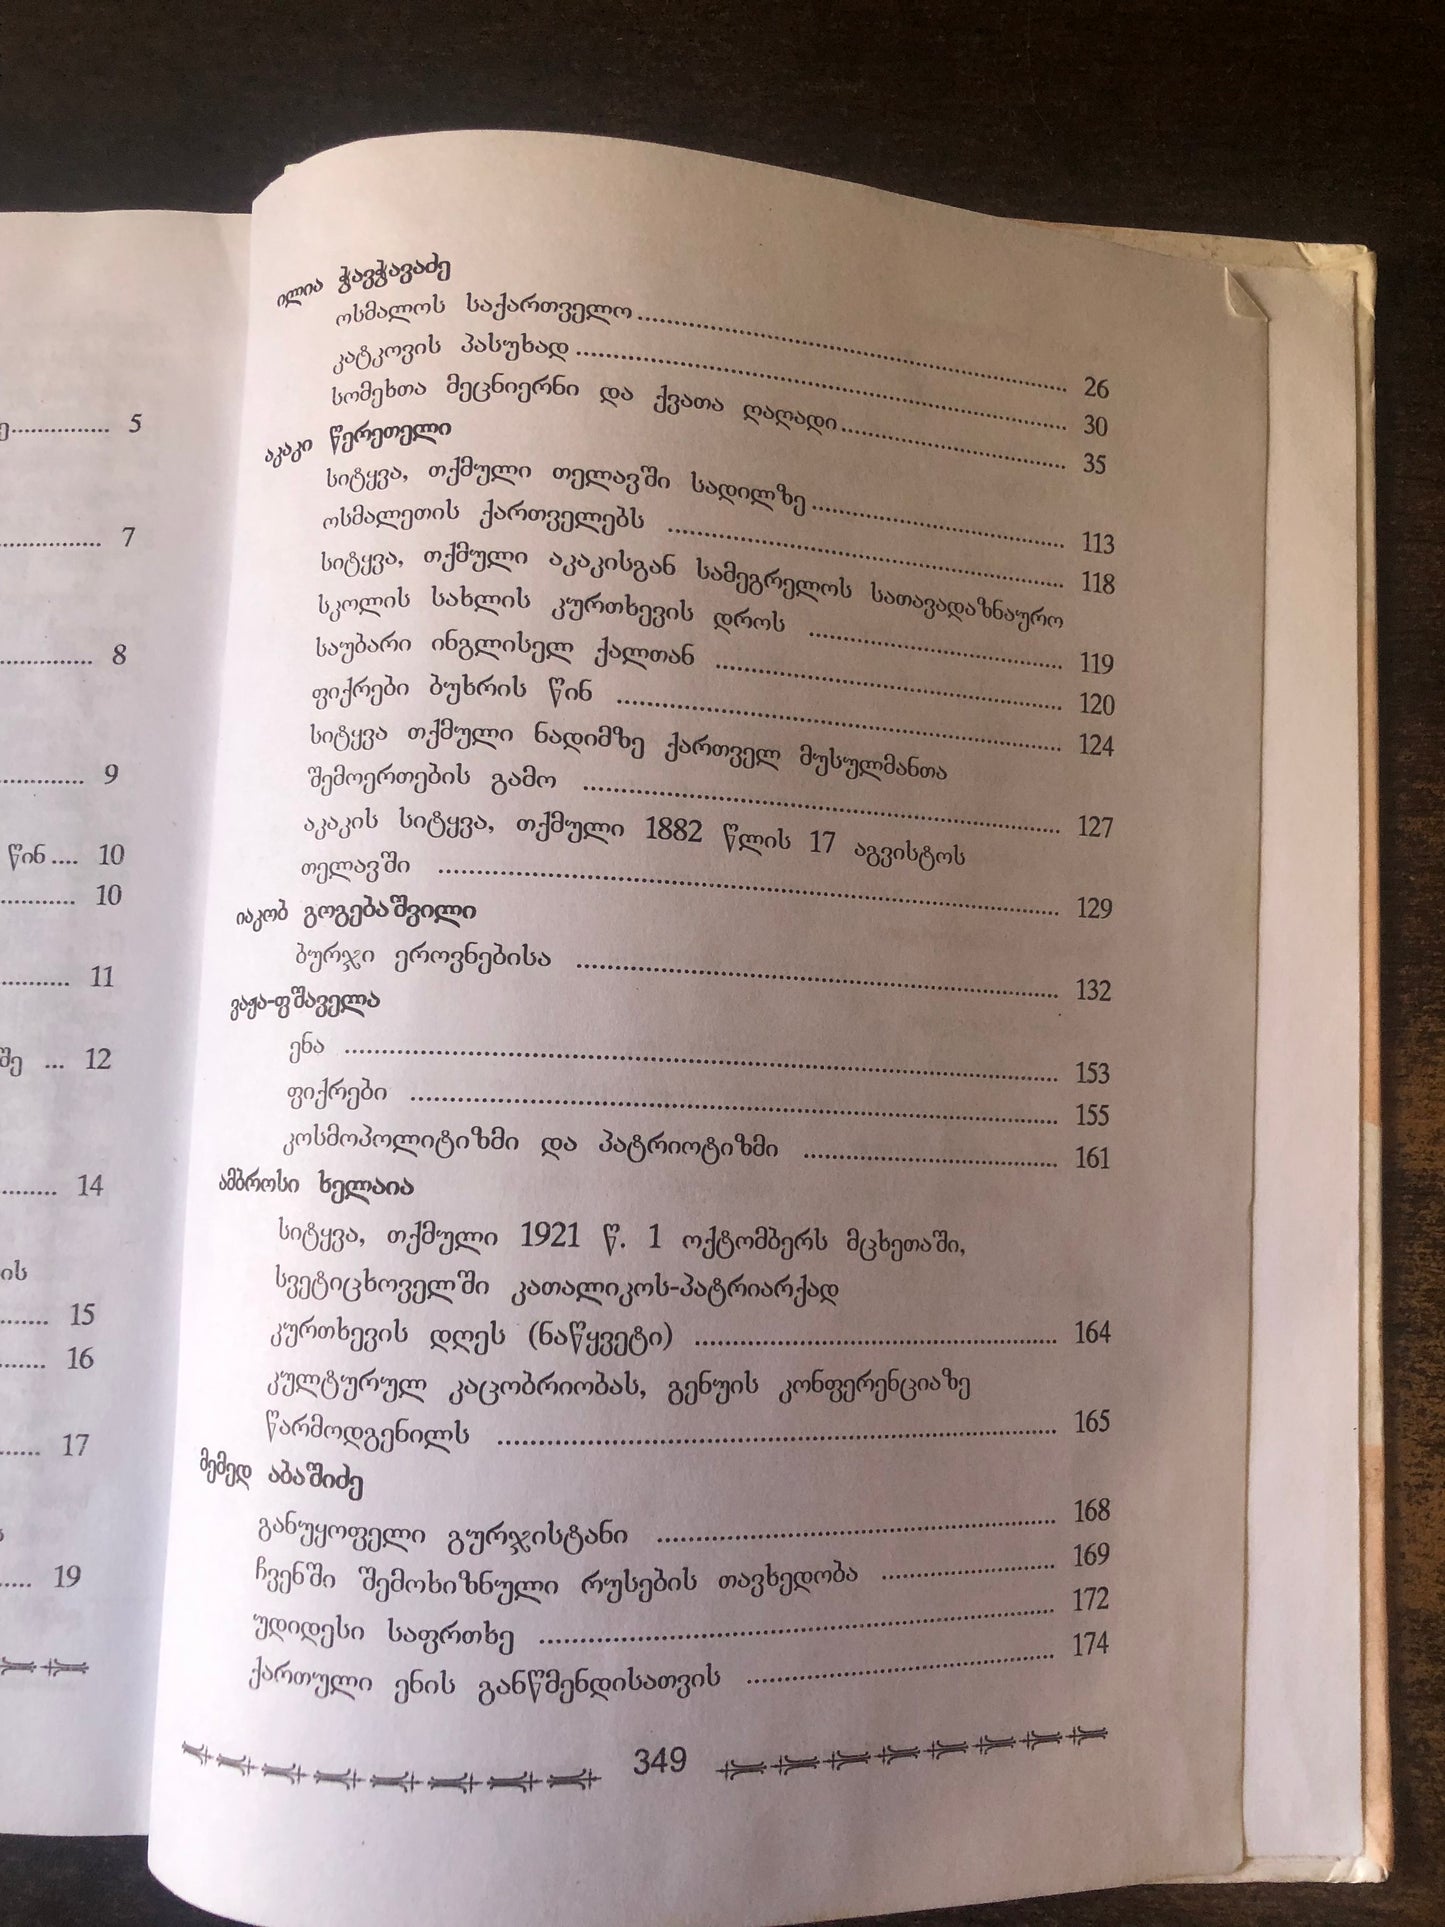 ე............... 5
................. 7
............... 8
.............. 9
წინ .... 10
............. 10
............ 11
შე ... 12
......... 14
ის
........ 15
....... 16
...... 17
..... 19
ილია ჭავჭავაძე
ოსმალოს საქართველო ........ 26
კატკოვის პასუხად ........ 30
სომეხთა მეცნიერნი და ქვათა ღაღადი ........ 35
აკაკი წერეთელი
სიტყვა, თქმული თელავში სადილზე ........ 113
ოსმალეთის ქართველებს ........ 118
სიტყვა, თქმული აკაკისგან სამეგრელოს სათავადაზნაურო
სკოლის სახლის კურთხევის დროს ........ 119
საუბარი ინგლისელ ქალთან ........ 120
ფიქრები ბუხრის წინ ........ 124
სიტყვა თქმული ნადიმზე ქართველ მუსულმანთა
შემოერთების გამო ........ 127
აკაკის სიტყვა, თქმული 1882 წლის 17 აგვისტოს
თელავში ........ 129
იაკობ გოგებაშვილი
ბურჯი ეროვნებისა ........ 132
ვაჟა-ფშაველა
ენა ........ 153
ფიქრები ........ 155
კოსმოპოლიტიზმი და პატრიოტიზმი ........ 161
ამბროსი ხელაია
სიტყვა, თქმული 1921 წ. 1 ოქტომბერს მცხეთაში,
სვეტიცხოველში კათალიკოს-პატრიარქად
კურთხევის დღეს (ნაწყვეტი) ........ 164
კულტურულ კაცობრიობას, გენუის კონფერენციაზე
წარმოდგენილს ........ 165
მემედ აბაშიძე
განუყოფელი გურჯისტანი ........ 168
ჩვენში შემოხიზნული რუსების თავხედობა ........ 169
უდიდესი საფრთხე ........ 172
ქართული ენის განწმენდისათვის ........ 174
349